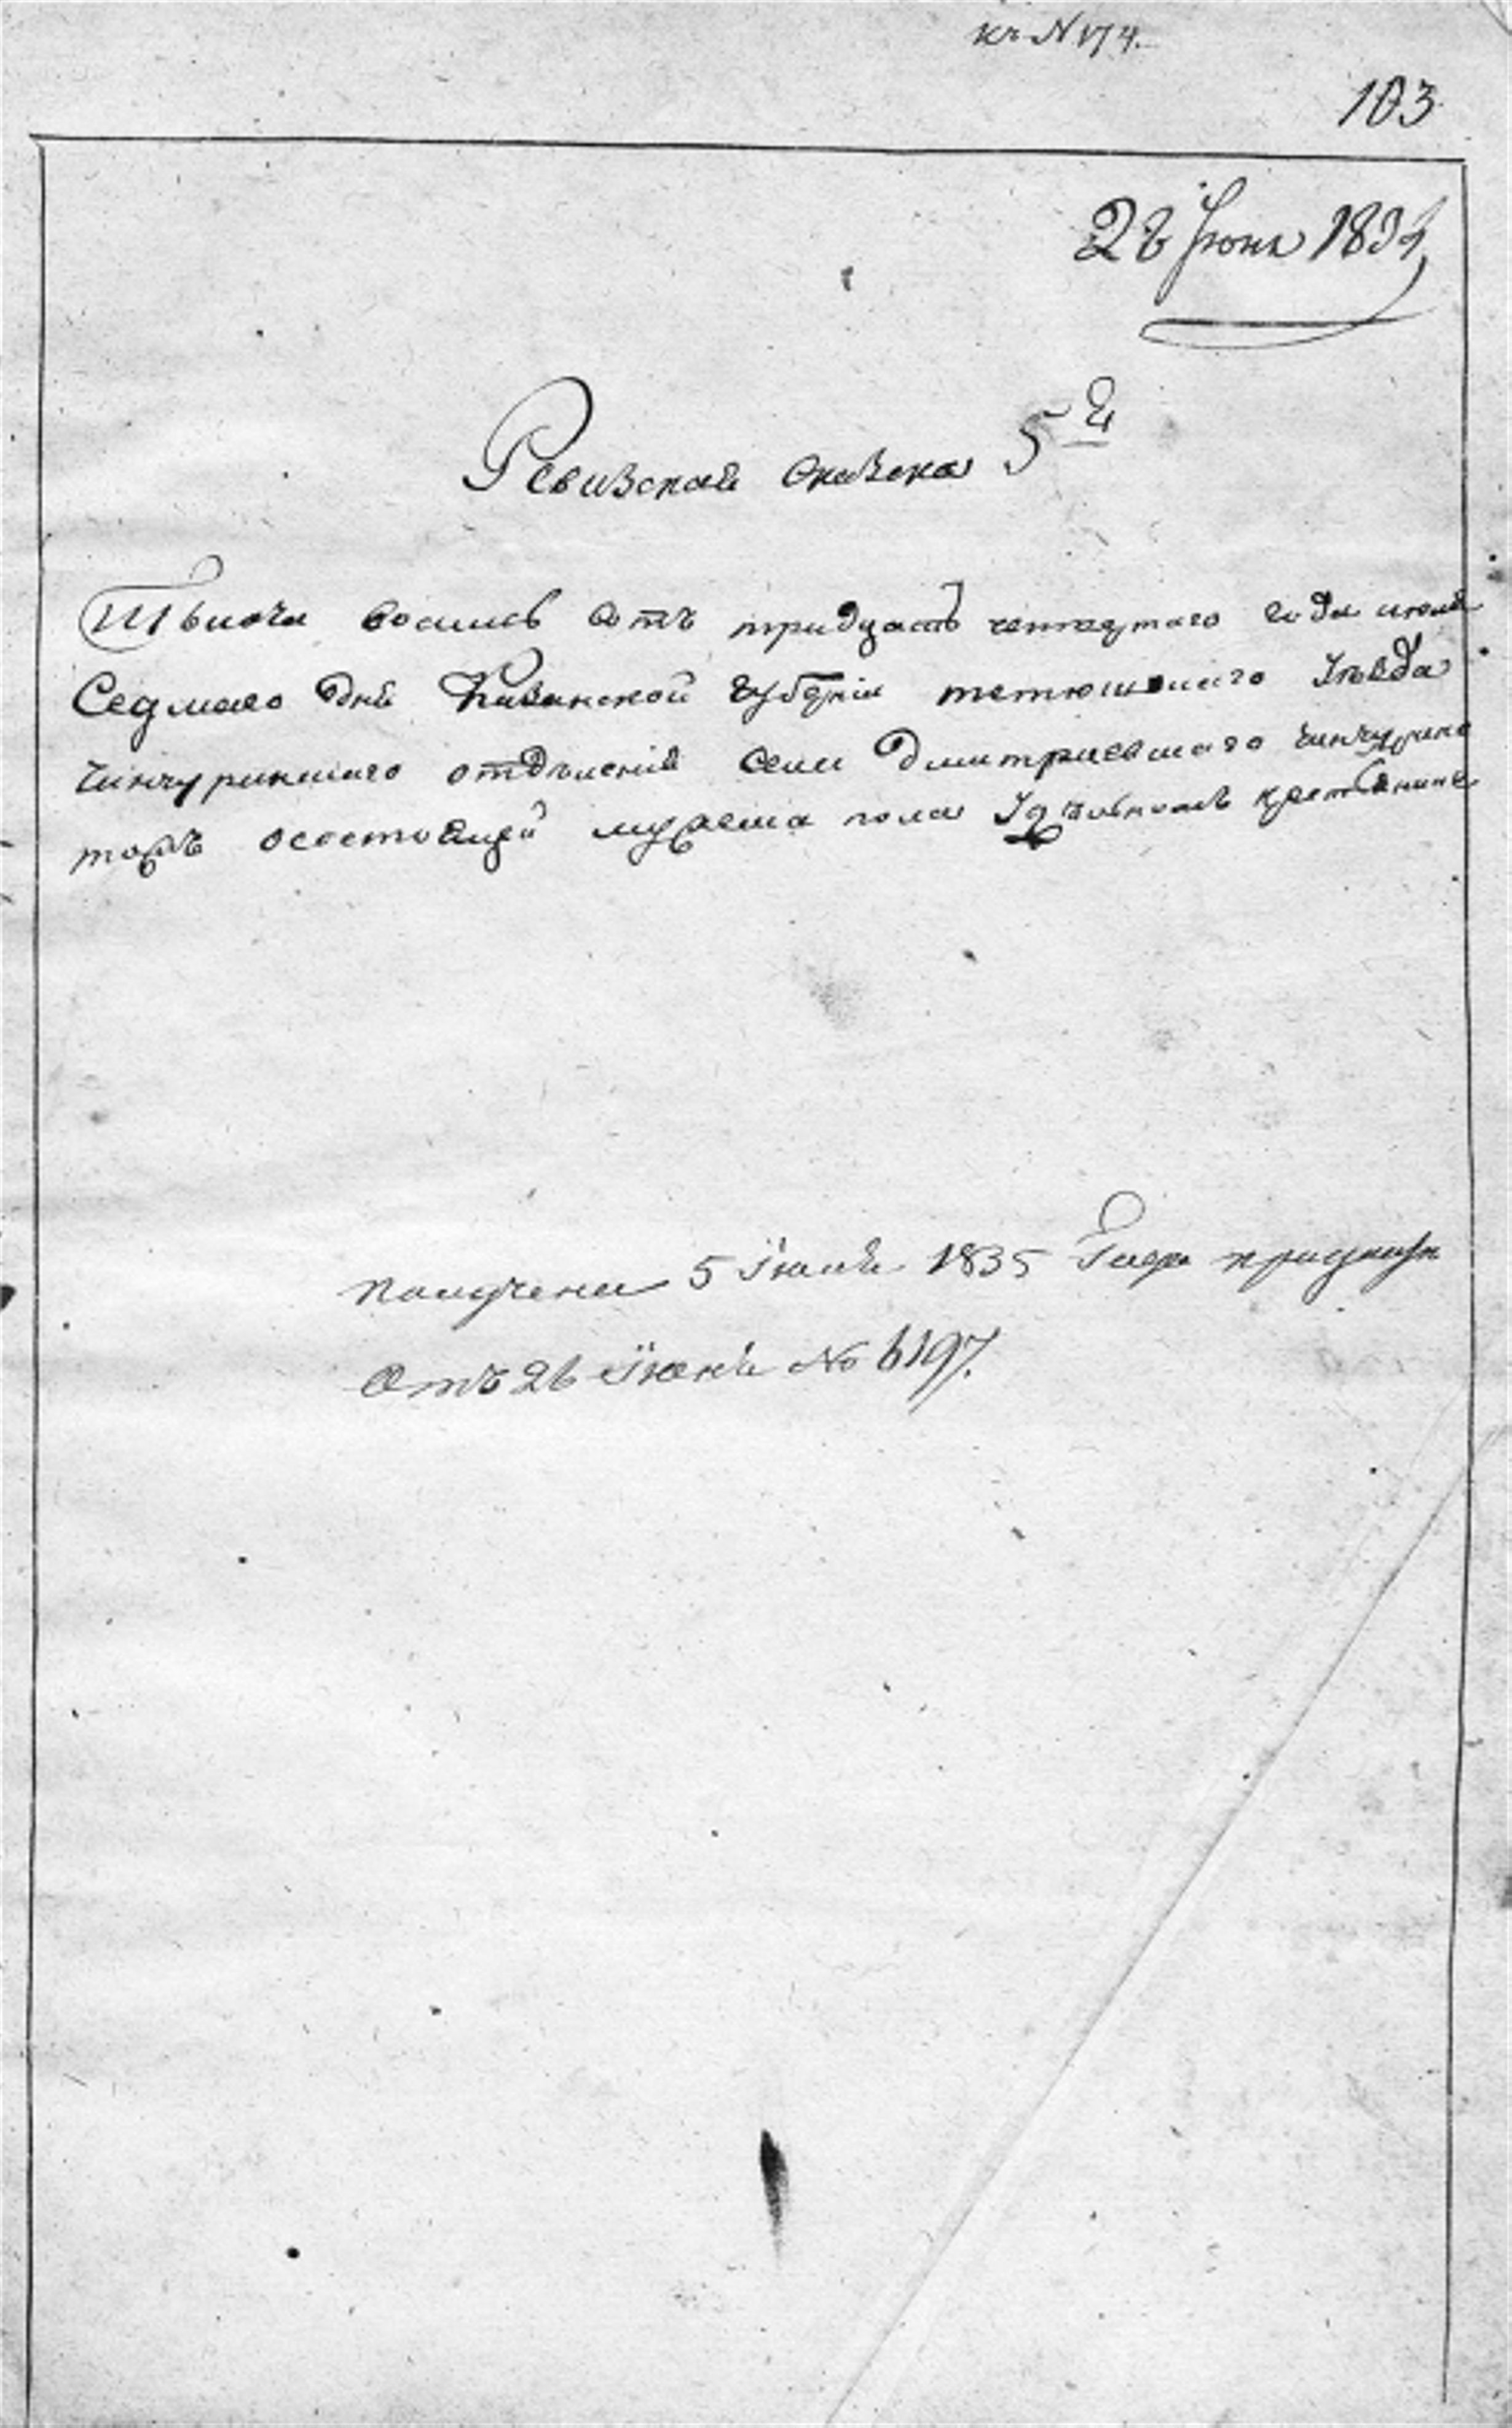 къ N 174.
103
Июня 183
Ревизская сказска 5
Тысяча восимсѣ отъ тридцать четвертаго года июля
Седмаго дня Казанской губерніи тетюшскаго Уѣзда
чинчуринскаго отдѣленія села дмитриевскаго чинчурино
тожъ осостоящей мужеска пола Удѣльномъ крестянине
Получена 5 Июля 1835 при
отъ 26 Июня № 6197.